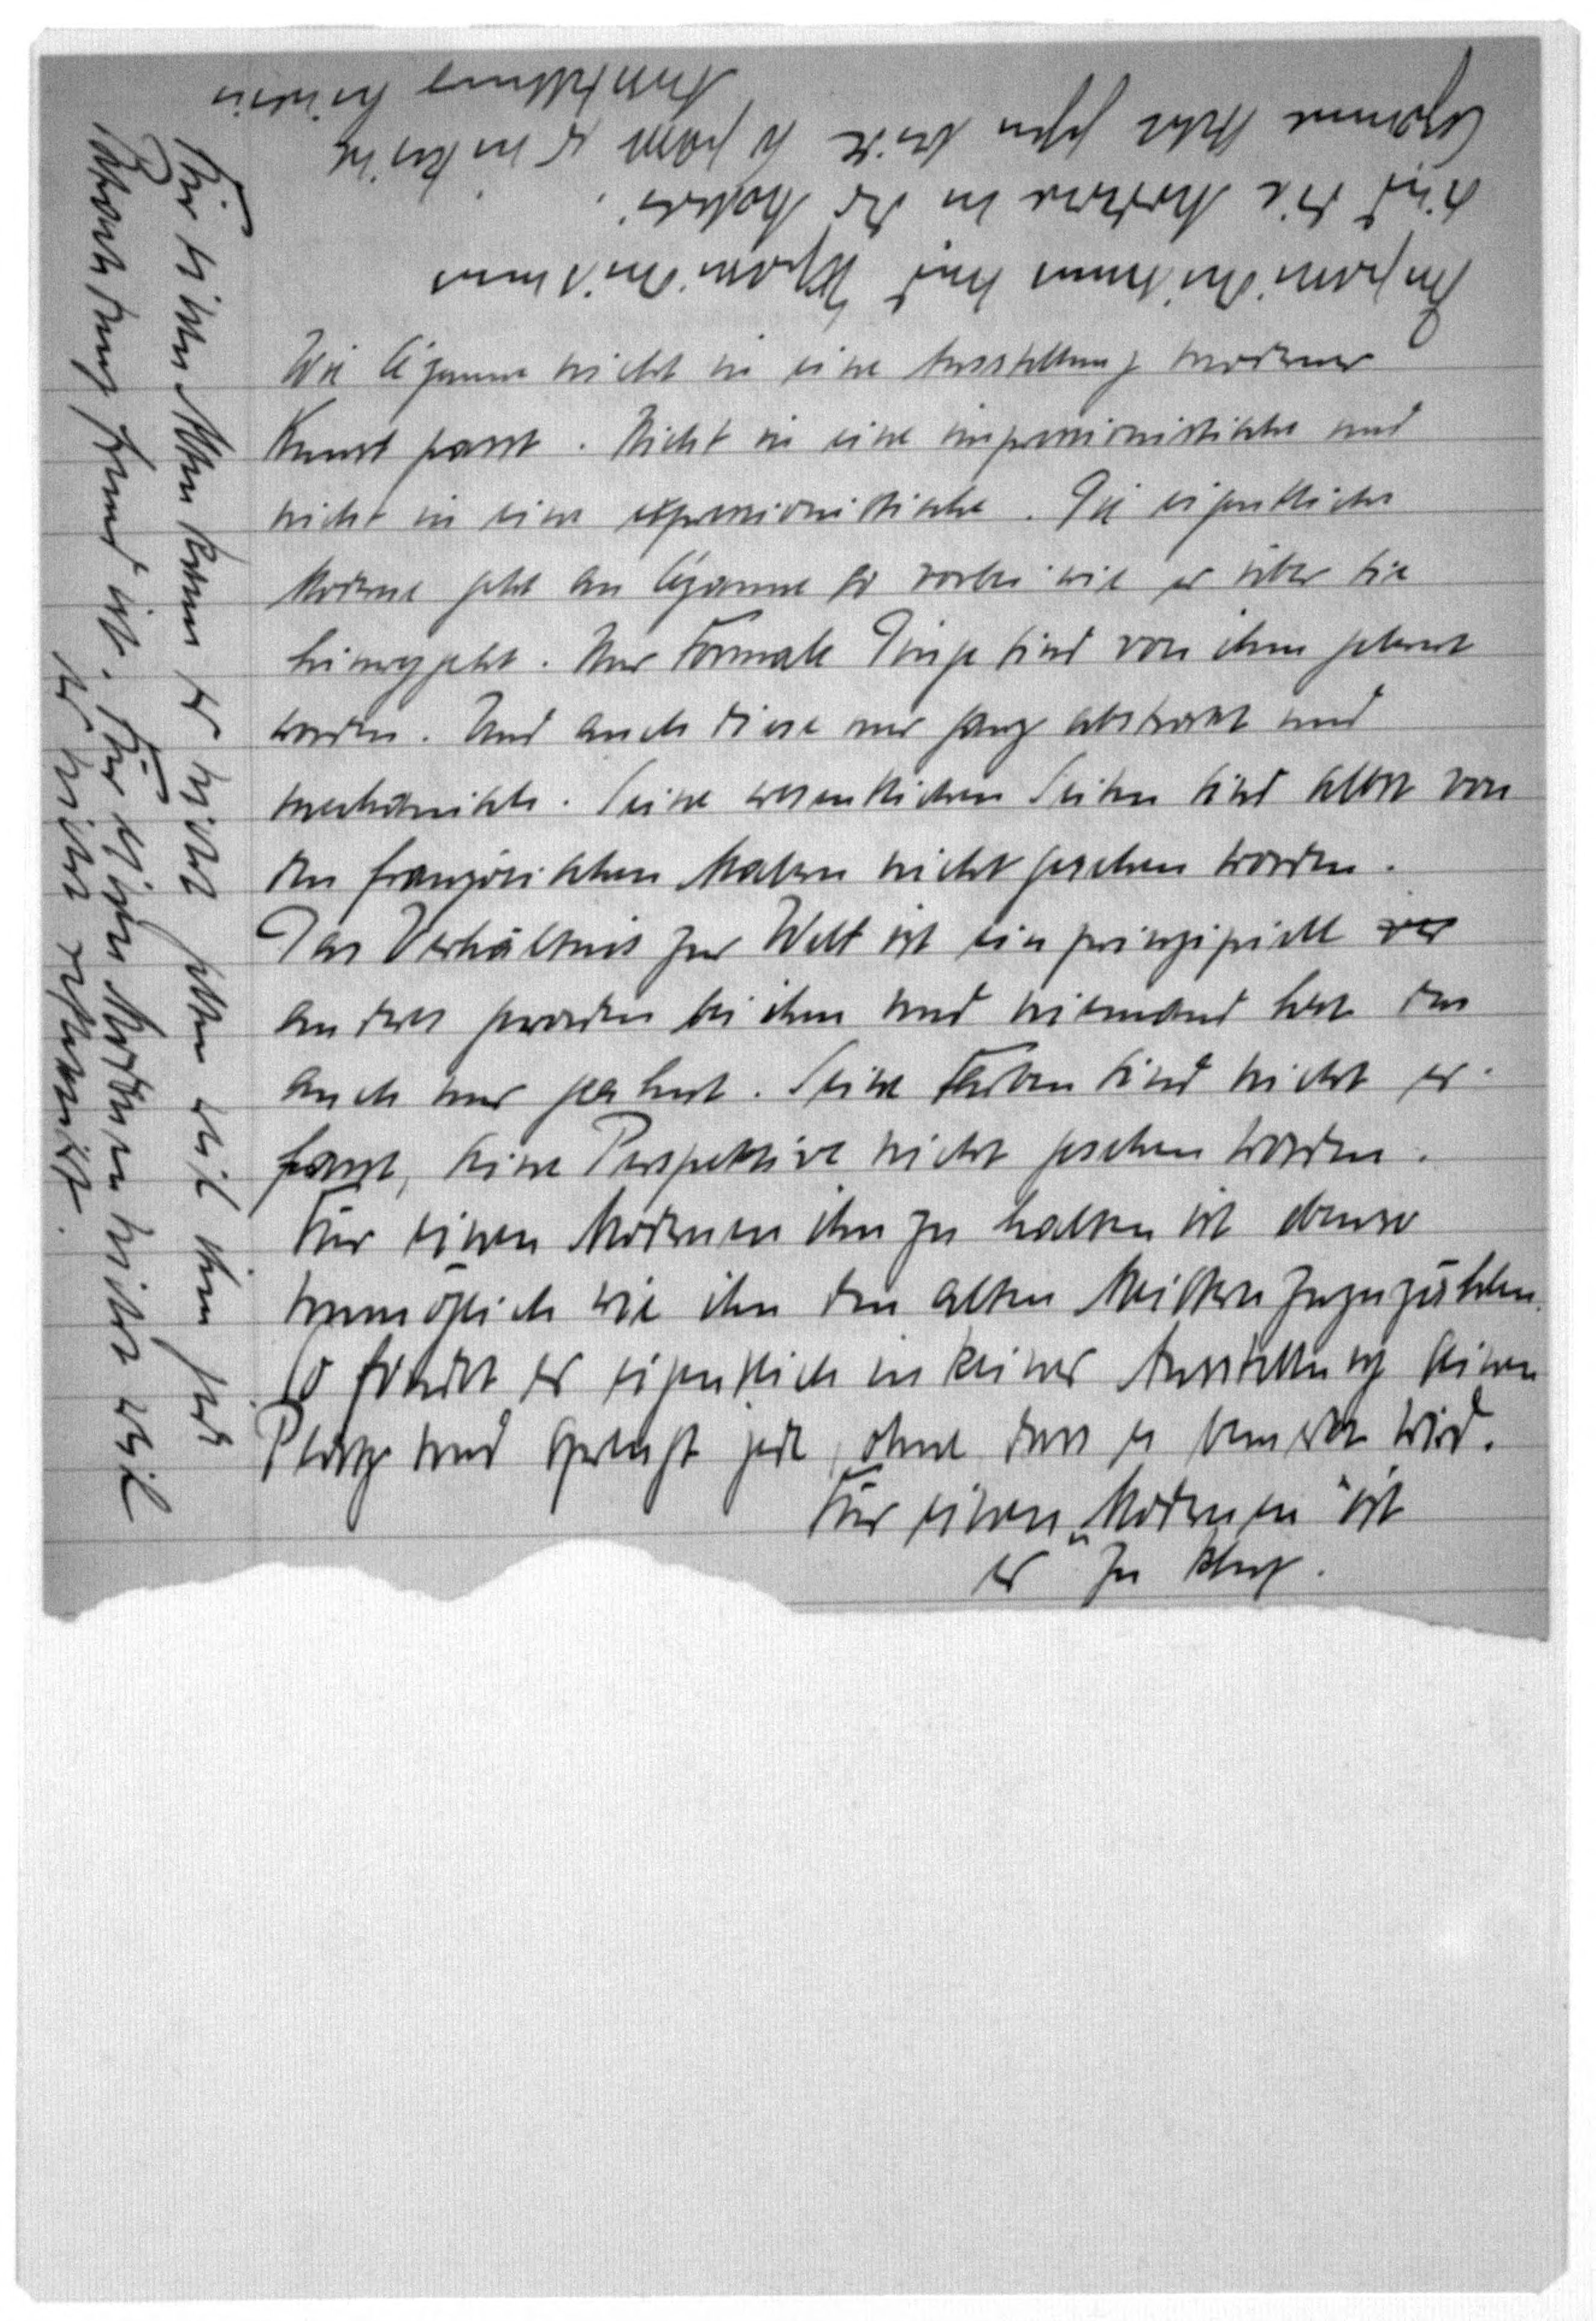 Wie Cézanne nicht in eine Ausstellung moderner
Kunst passt. Nicht in eine impressionistische und
nicht in eine expressionistische. Die eigentliche
Moderne geht an Cézanne so vorbei wie er über sie
hinweggeht. Nur Formale Dinge sind von ihm gelernt
worden. Und auch diese nur ganz abstrakt und
mechanisch. Seine wesentlichen Seiten sind selbst von
den französischen Malern nicht gesehen worden.
Das Verhältnis zur Welt ist ein prinzipiell
anderes geworden bei ihm und niemand hat das
auch nur geahnt. Seine Farben sind nicht er-
fasst, seine Perspektive nicht gesehen worden.
Für einen Modernen ihn zu halten ist ebenso
unmöglich wie ihn den alten Meistern zuzuzählen.
So findet er eigentlich in keiner Ausstellung seinen
Platz und sprengt jede, ohne dass es bemerkt wird.
Für einen „Modernen" ist
er zu klug.
Impressionismus und Expressionismus
sind die Moderne in der Malerei.
Cézanne steht gegen beide so passt er in keine
Ausstellung hinein
Für einen Alten kann er nicht gelten weil ihm jede
ist. Für einen Modernen nicht weil
er nicht